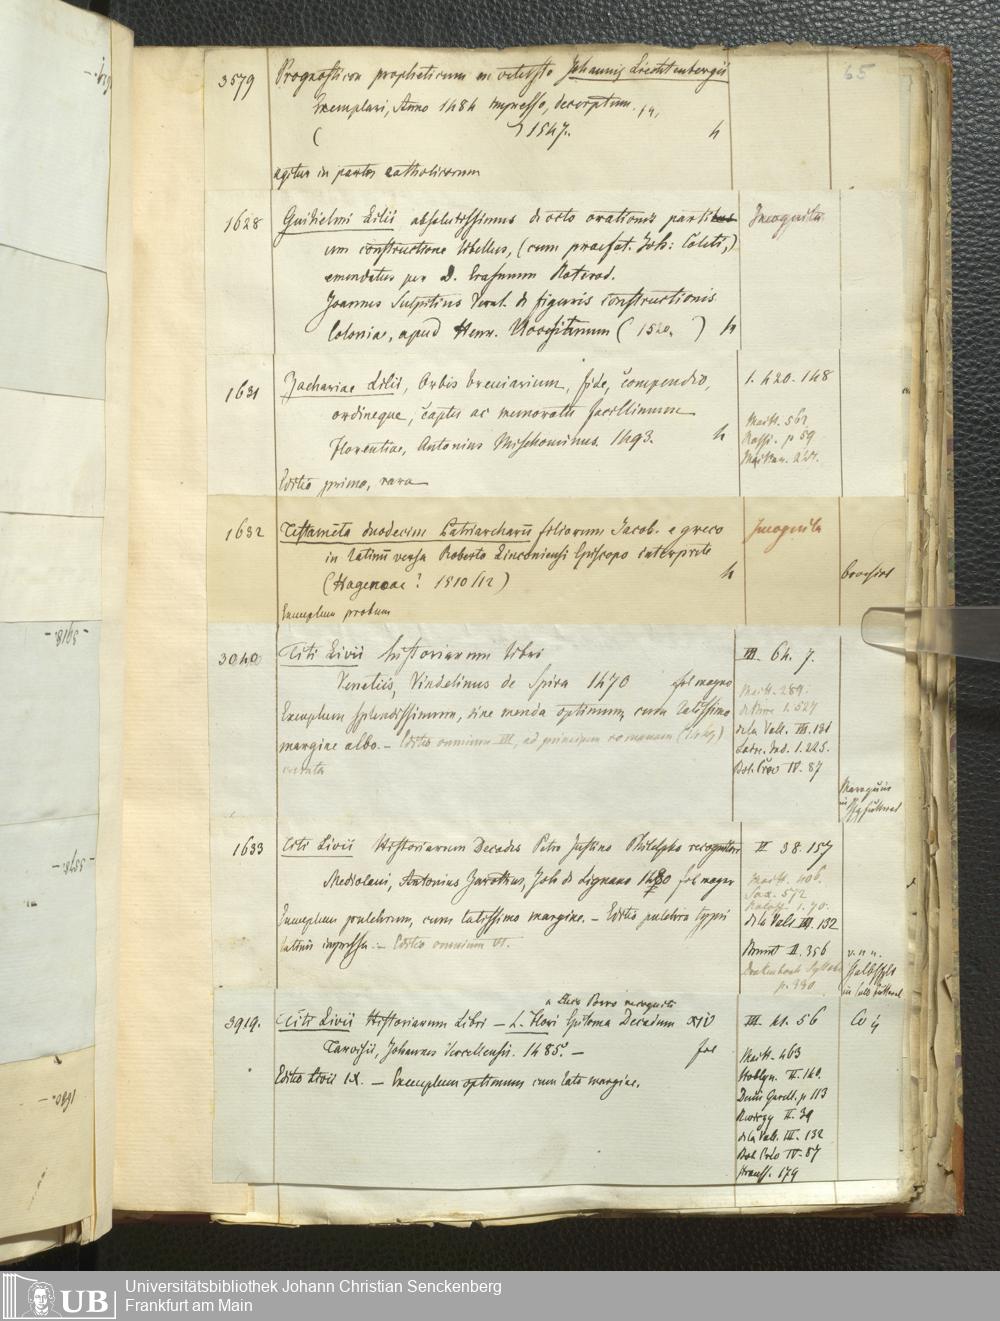 65
3579 Prognosticon propheticum in vetusto Johannis Liechtenbergii
Exemplari, Anno 1484 impresso, descriptum.
( ) 1547. h
agitur in partes catholicorum
1628 Guilielmi Lilii absolutissimus de octo orationis parti
um constructione libellus, (cum praefat. Joh: Coleti,)
emendatus per D. Erasmum Roterod.
Joannes Sulpitius Verul. de figuris constructionis
Coloniae, apud Henr. ( 1520. ) h
Incognita
1631 Zachariae Lilii, Orbis breviarium, fide, compendio,
ordineque, captu ac memoratu facillimum
Florentiae, Antonius Mischominus. 1493. h
Editio prima, rara
1. 420. 148
Maitt. 562
Rossi. p 59
1632 Testamēta duodecim Patriarcharū filiorum Jacob. e greco
in latinū versa Roberto Linconiensi Episcopo interprete
(Hagenoae? 1510/12) h
Exemplum probum
Incognita
3040 Titi Livii historiarum libri
Venetiis, Vindelinus de Spira 1470 fol magno
Exemplum splendissimum, sine menda optimum, cum latissimo
margine albo. – Editio omnium III, ad principem romanam (1469)
III. 64. 7.
Maitt. 289.
1. 527
de la Vall. III. 131
Laire. Ind. 1. 225.
IV. 87
1633 Titi Livii Historiarum Decades Petro Justino Philelpho recognitore
Mediolani, Antonius Zarothus, Joh de Lignano 1480 fol major
Exemplum pulchrum, cum latissimo margine. – Editio pulchris typis
latinis impressa. – Editio omnium VI.
II 38. 157
Maitt. 406.
572
1. 70.
de la Vall III. 132
Brunet II. 356
p. 330
v. n n.
3919. Titi Livii Historiarum Libri – L. Flori Epitoma Decadum XIV
Tarvisii, Johannes Vercellensis. 1485. – fol
Editio Livii IX. – Exemplum optimum cum lato margine.
III. 41. 56
Maitt. 463
II. 140.
p 113
II. 39
de la Vall. III. 132
IV. 87
179
- 3918. -
- 3578. -
1630. -
UB
Universitätsbibliothek Johann Christian Senckenberg
Frankfurt am Main